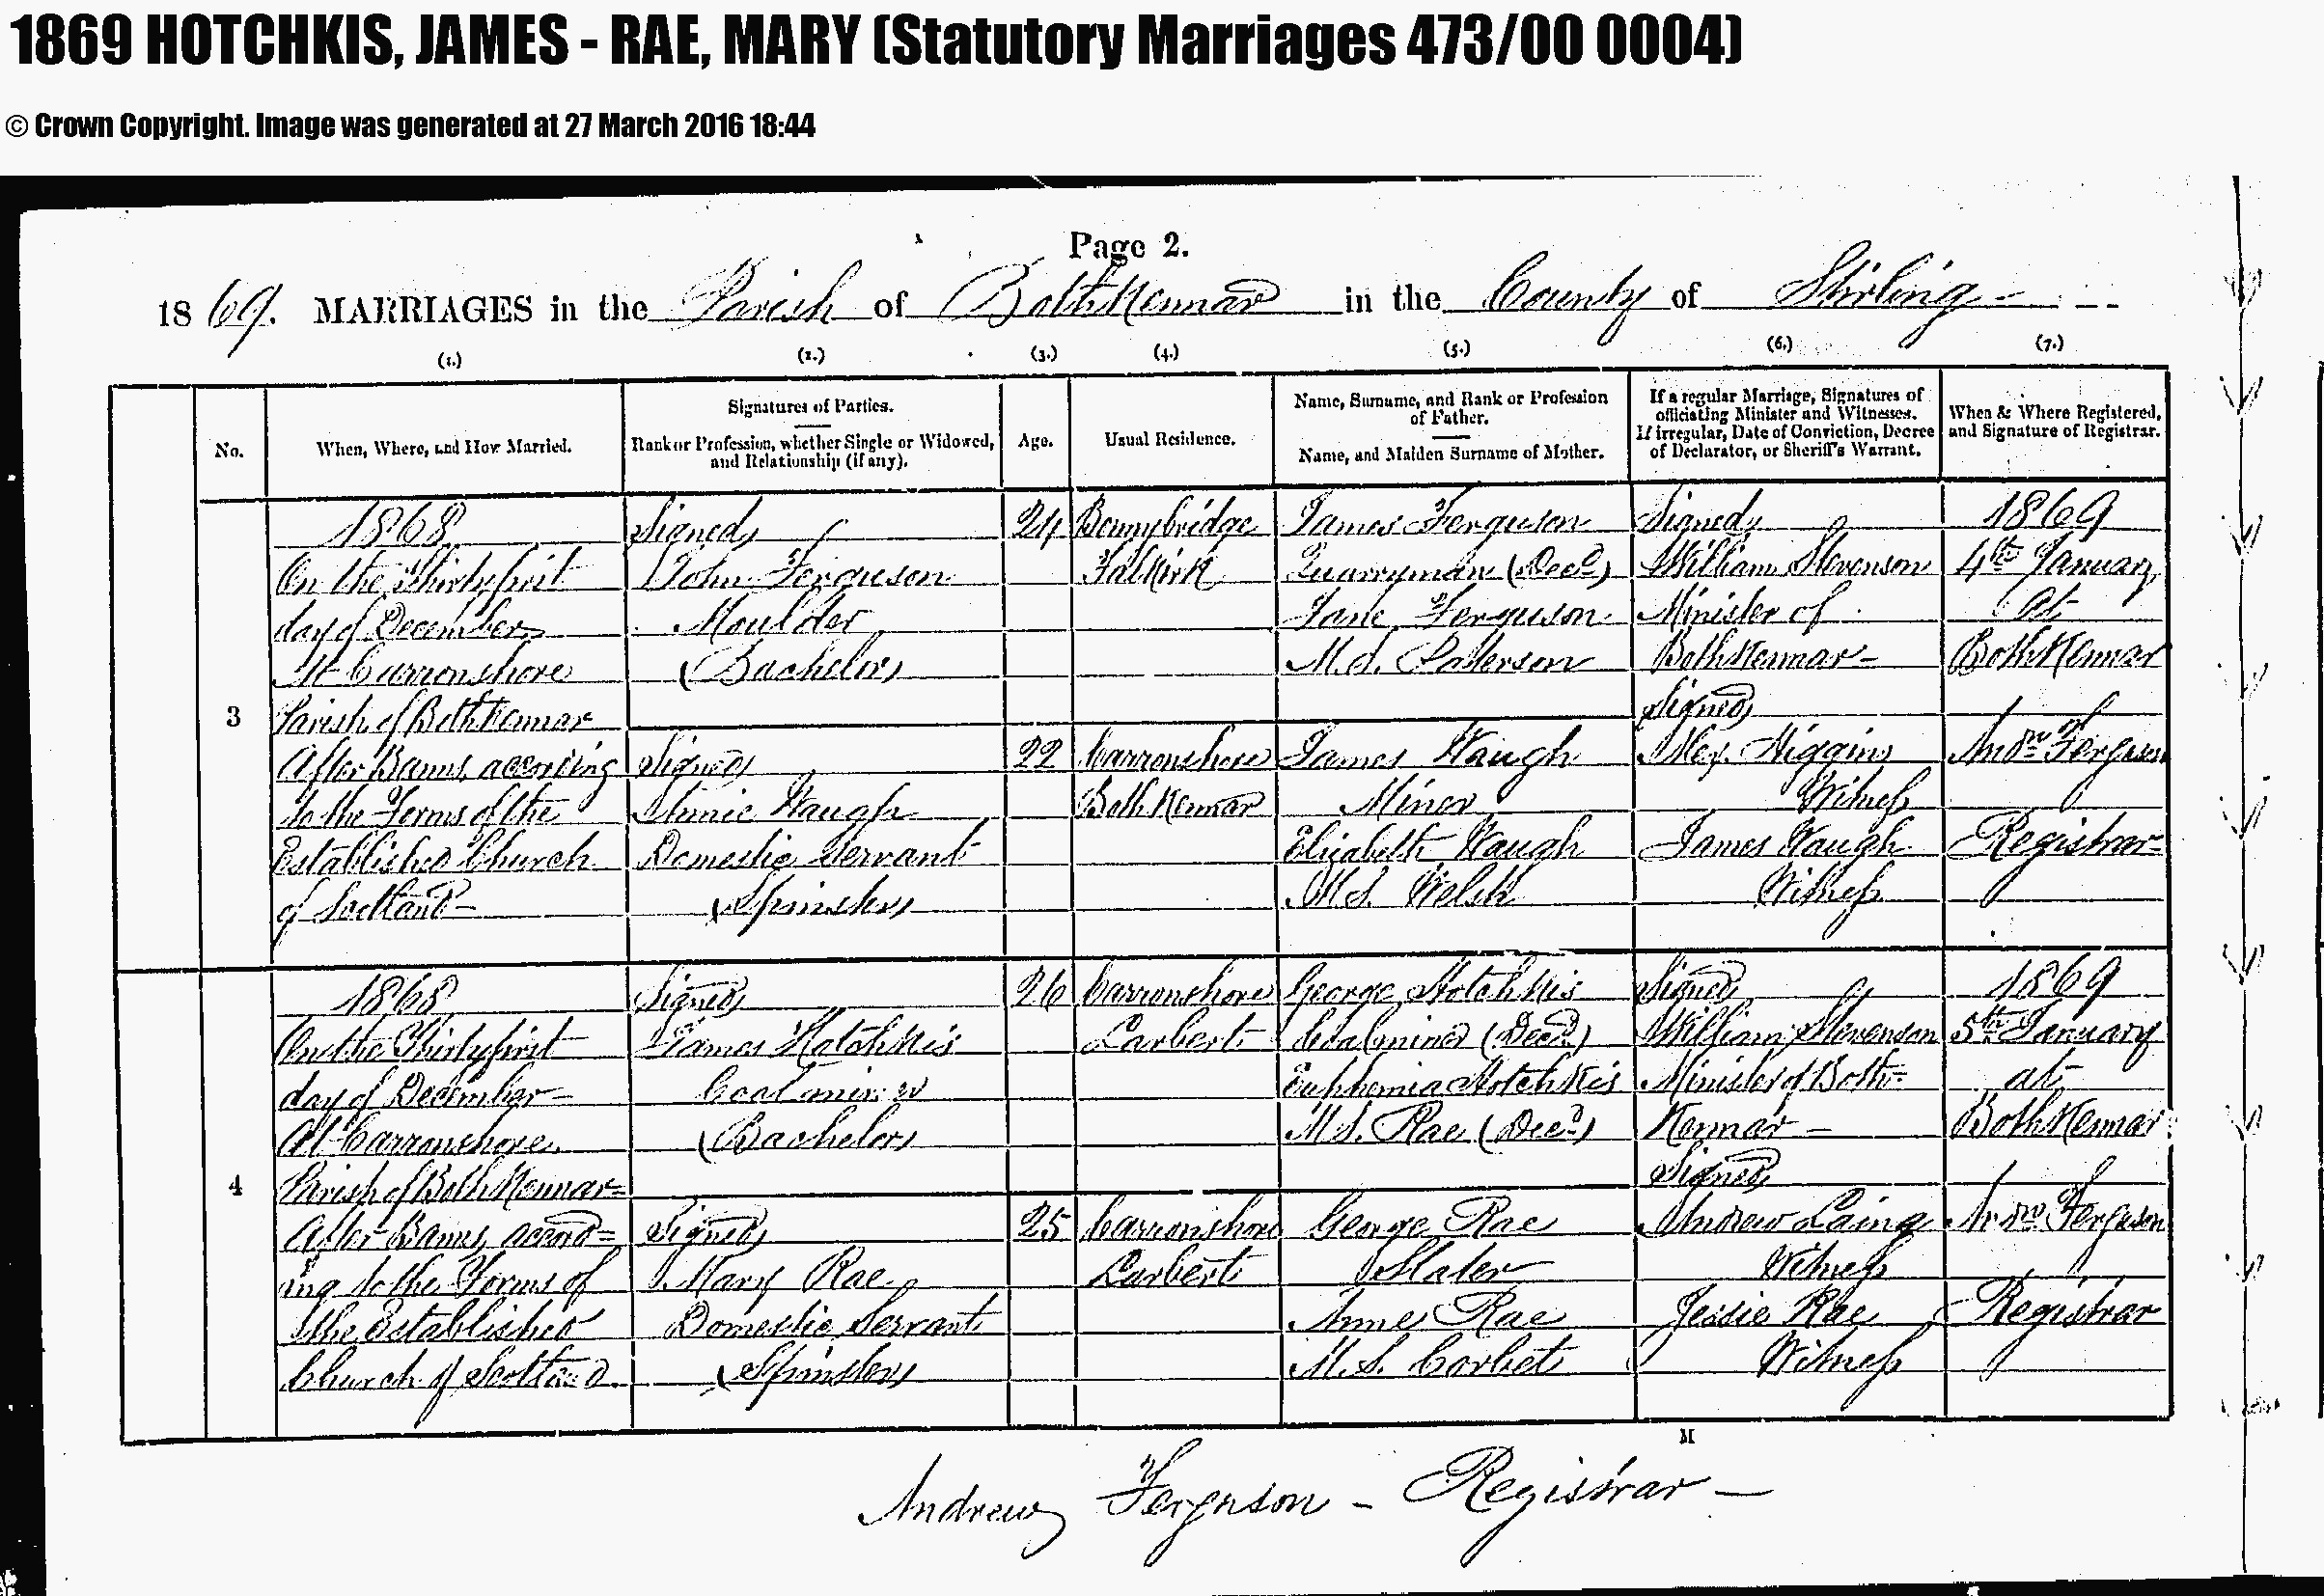 1869 HOTCHKIS, JAMES - RAE, MARY (Statutory Marriages 473/00 0004)
© Crown Copyright. Image was generated at 27 March 2016 18:44
Page 2.
1869. MARRIAGES in the Parish of Bothkennar in the County of Stirling
(1.) (2.) (3.) (4.) (5.) (6.) (7.)
No.
When, Where, and How Married.
Signatures of Parties.
Rank or Profession, whether Single or Widowed,
and Relationship (if any).
Age.
Usual Residence.
Name, Surname, and Rank or Profession
of Father.
Name, and Maiden Surname of Mother.
If a regular Marriage, Signatures of
officiating Minister and Witnesses.
If irregular, Date of Conviction, Decree
of Declarator, or Sheriff's Warrant.
When & Where Registered,
and Signature of Registrar.
3
1868
On the Thirtyfirst
day of December
At Carronshore
Parish of Bothkennar
After Banns, according
to the Forms of the
Established Church
of Scotland
Signed
John Ferguson
Moulder
(Bachelor)
Signed
Annie Waugh
Domestic Servant
(Spinster)
24
22
Bonnybridge
Falkirk
Carronshore
Bothkennar
James Ferguson
Quarryman (Decd)
Jane Ferguson
M.S. Paterson
James Waugh
Miner
Elizabeth Waugh
M.S. Welsh
Signed
William Stevenson
Minister of
Bothkennar
Signed
Alex. Higgins
Witness
James Waugh
Witness
1869
4th January
At
Bothkennar
Andrw Ferguson
Registrar
4
1868
On the Thirtyfirst
day of December
At Carronshore
Parish of Bothkennar
After Banns, accord=
ing to the Forms of
the Established
Church of Scotland
Signed
James Hotchkis
Coal miner
(Bachelor)
Signed
Mary Rae
Domestic Servant
(Spinster)
26
25
Carronshore
Larbert
Carronshore
Larbert
George Hotchkis
Coalminer (Decd)
Euphemia Hotchkis
M.S. Rae (Decd)
George Rae
Slater
Anne Rae
M.S. Corbet
Signed
William Stevenson
Minister of Both=
Kennar
Signed
Andrew Laing
Witness
Jessie Rae
Witness
1869
5th January
at
Bothkennar
Andrw Ferguson
Registrar
M
Andrew Ferguson - Registrar -